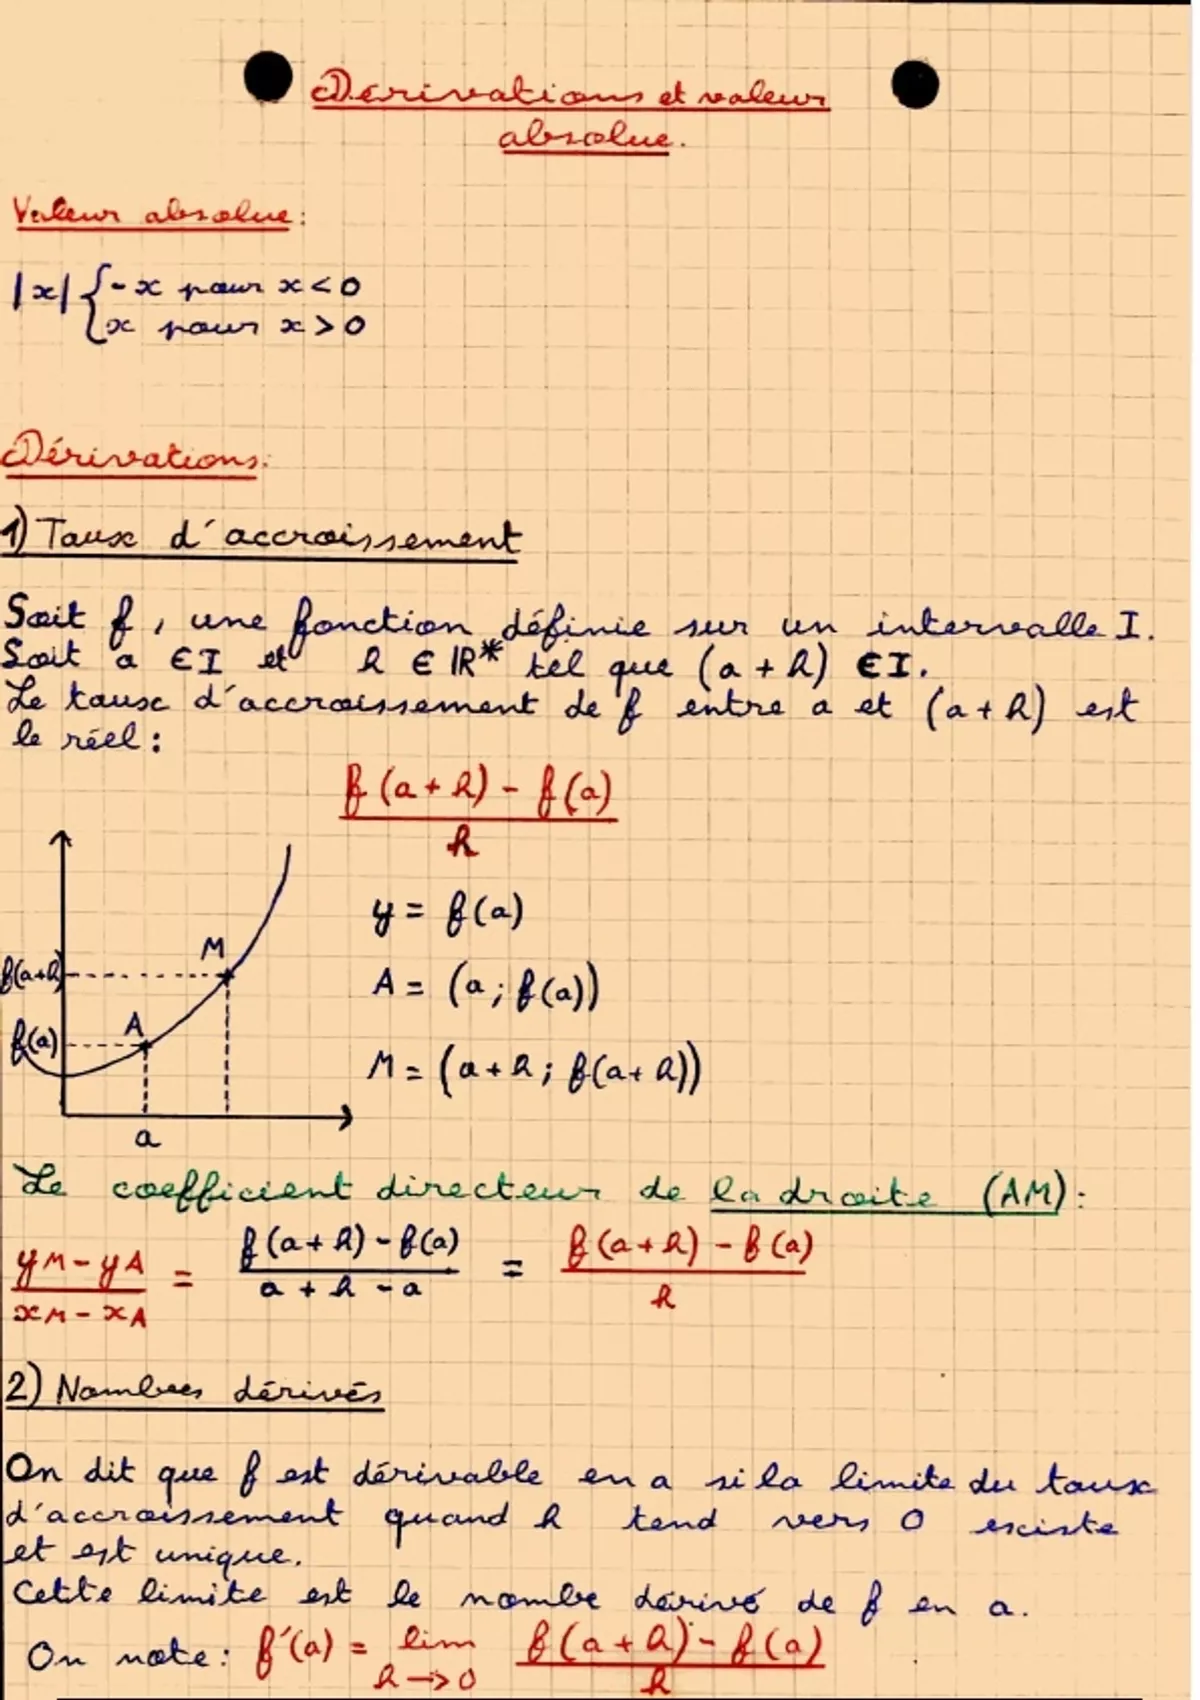 Derivations et valeur
absolue.
Valeur absolue:
|x| { -x pour x < 0
x pour x > 0
Dérivations:
1) Taux d'accroissement
Soit f, une fonction définie sur un intervalle I.
Soit a ∈ I et h ∈ ℝ* tel que (a + h) ∈ I.
Le taux d'accroissement de f entre a et (a + h) est
le réel :
f(a + h) - f(a)
h
y = f(a)
M
f(a+h)
A = (a ; f(a))
A
f(a)
M = (a + h ; f(a + h))
a
Le coefficient directeur de la droite (AM) :
yM - yA / xM - xA = f(a + h) - f(a) / a + h - a = f(a + h) - f(a) / h
2) Nombres dérivés
On dit que f est dérivable en a si la limite du taux
d'accroissement quand h tend vers 0 existe
et est unique.
Cette limite est le nombe dérivé de f en a.
On note : f'(a) = lim h→0 f(a + h) - f(a) / h